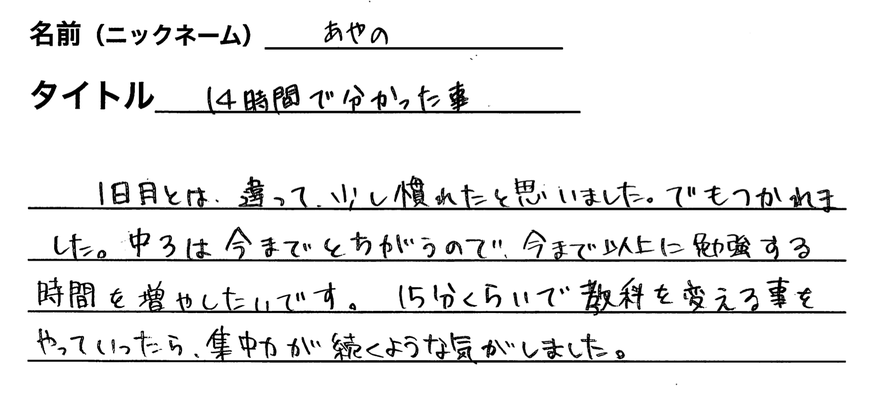 名前（ニックネーム） あやの
タイトル 14時間で分かった事
1日目とは、違って、少し慣れたと思いました。でもつかれま
した。中3は今までとちがうので、今まで以上に勉強する
時間を増やしたいです。 15分くらいで教科を変える事を
やっていったら、集中力が続くような気がしました。